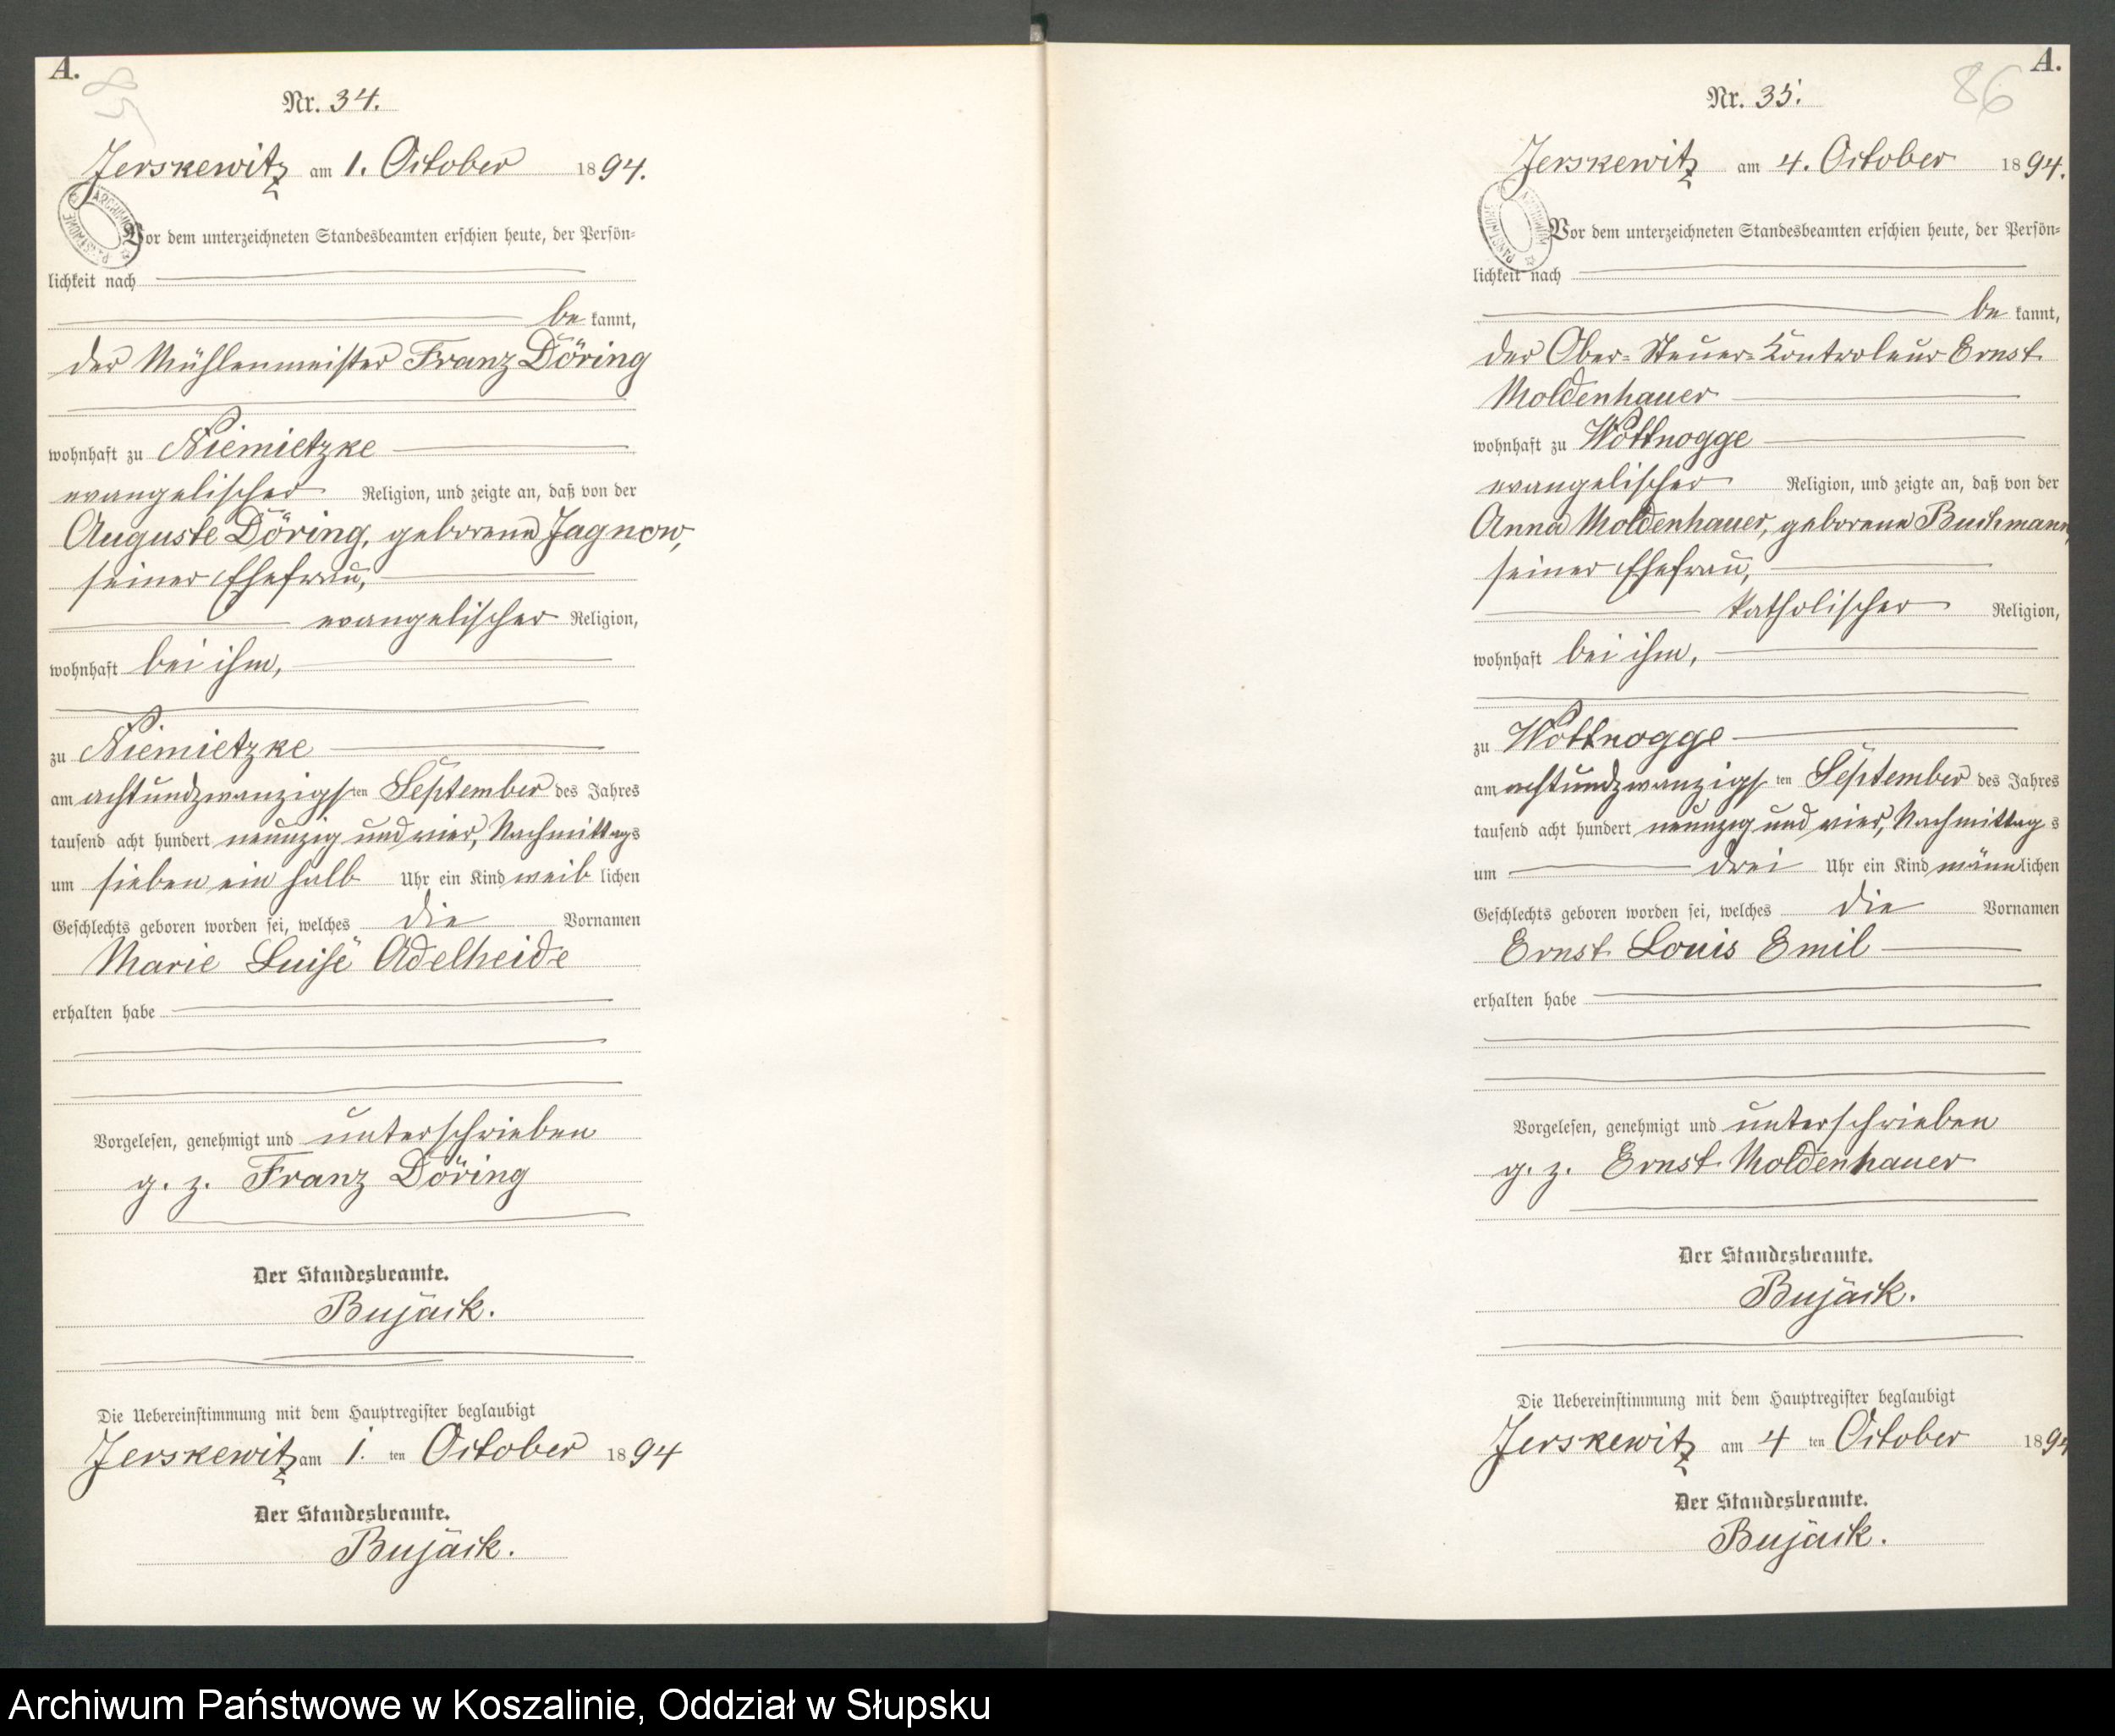 A.
85
Nr. 34.
Jerskewitz am 1. October 1894.
Vor dem unterzeichneten Standesbeamten erschien heute, der Persön=
lichkeit nach
be kannt,
der Mühlenmeister Franz Döring
wohnhaft zu Niemietzke
evangelischer Religion, und zeigte an, daß von der
Auguste Döring, geborene Jagnow,
seiner Ehefrau,
evangelischer Religion,
wohnhaft bei ihm,
zu Niemietzke
am achtundzwanzigsten September des Jahres
tausend acht hundert neunzig und vier, Nachmittags
um sieben ein halb Uhr ein Kind weiblichen
Geschlechts geboren worden sei, welches die Vornamen
Marie Luise Adelheide
erhalten habe
Vorgelesen, genehmigt und unterschrieben
g. z. Franz Döring
Der Standesbeamte.
Bujäck.
Die Uebereinstimmung mit dem Hauptregister beglaubigt
Jerskewitz am 1. ten October 1894
Der Standesbeamte.
Bujäck.
A.
86
Nr. 35.
Jerskewitz am 4. October 1894.
Vor dem unterzeichneten Standesbeamten erschien heute, der Persön=
lichkeit nach
be kannt,
der Ober=Steuer=Kontroleur Ernst
Moldenhauer
wohnhaft zu Wottnogge
evangelischer Religion, und zeigte an, daß von der
Anna Moldenhauer, geborene Buchmann,
seiner Ehefrau,
katholischer Religion,
wohnhaft bei ihm,
zu Wottnogge
am achtundzwanzigsten September des Jahres
tausend acht hundert neunzig und vier, Nachmittags
um drei Uhr ein Kind männlichen
Geschlechts geboren worden sei, welches die Vornamen
Ernst Louis Emil
erhalten habe
Vorgelesen, genehmigt und unterschrieben
g. z. Ernst Moldenhauer
Der Standesbeamte.
Bujäck.
Die Uebereinstimmung mit dem Hauptregister beglaubigt
Jerskewitz am 4 ten October 1894
Der Standesbeamte.
Bujäck.
Archiwum Państwowe w Koszalinie, Oddział w Słupsku